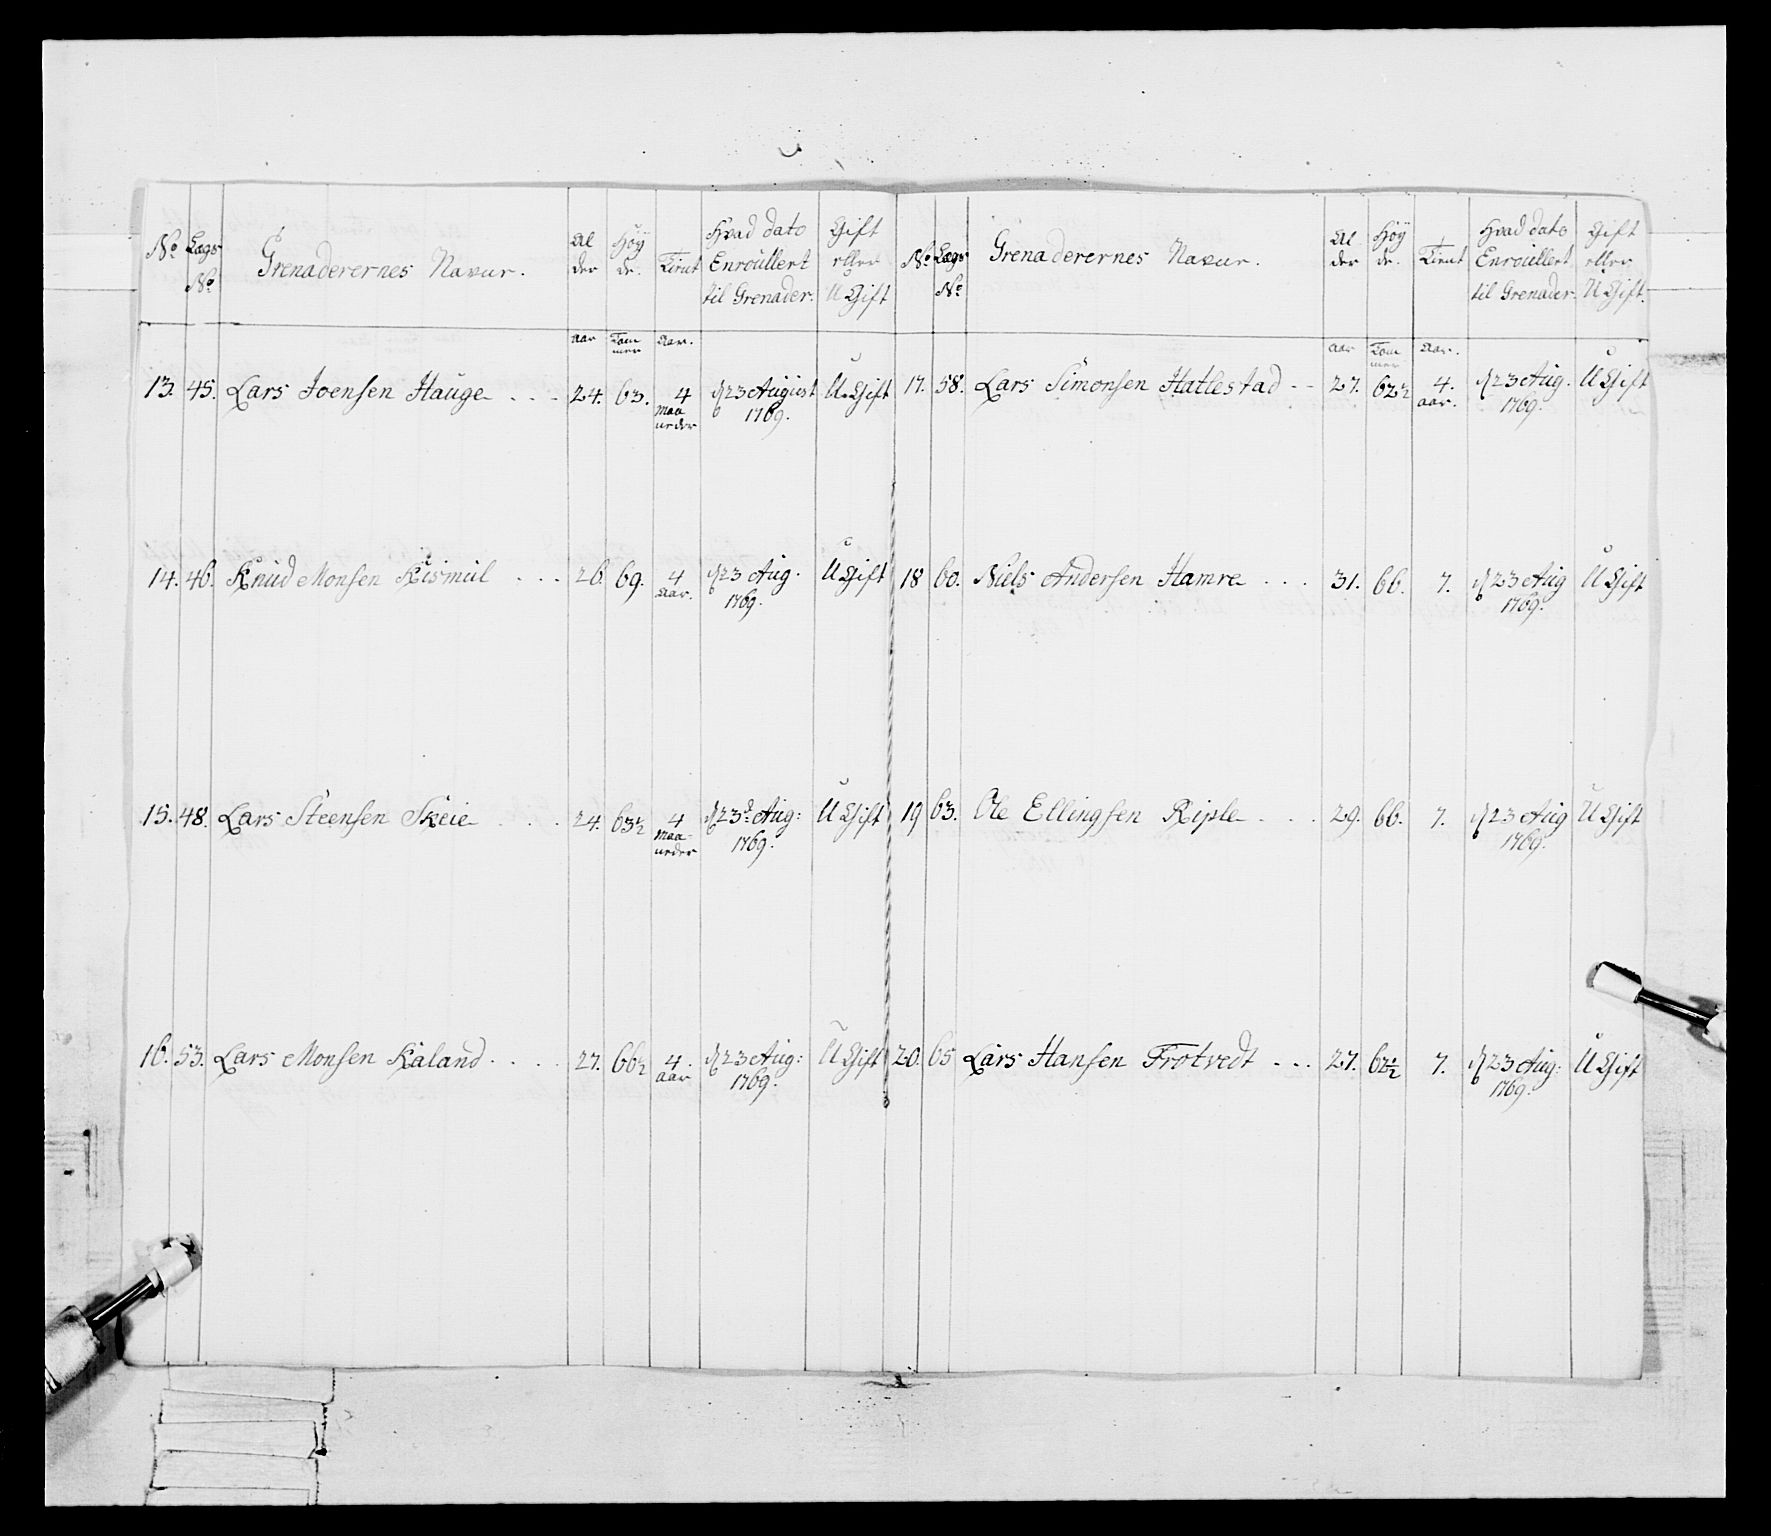 No Lægs No Grenaderernes Navne. Al der Höy de. Tient Hvad dato Enroullert til Grenader. Gift eller U Gift
aar Tom mer aar.
13. 45. Lars Joensen Hauge 24. 63. 4 maa neder d 23 August 1769. U Gift
14. 46. Knud Monsen Kismul 26 69. 4 aar. d 23 Aug. 1769. U Gift
15. 48. Lars Steensen Skeie 24. 63½ 4 maa neder d 23d Aug: 1769. U Gift
16. 53. Lars Monsen Kaland 27. 66½ 4. aar d 23 Aug: 1769. U Gift
No Lægs No Grenaderernes Navne. Al der Höy de. Tient Hvad dato Enroullert til Grenader. Gift eller U Gift.
aar Tom mer aar.
17. 58. Lars Simonsen Hatlestad 27. 62½ 4. aar. d 23 Aug. 1769. U Gift
18 60. Niels Andersen Hamre 31. 66. 7. d 23 Aug 1769. U Gift
19 63. Ole Ellingsen Riple 29. 66. 7. d 23 Aug 1769. U Gift
20. 65 Lars Hansen Frotvedt 27. 62½ 7. d 23 Aug: 1769. U Gift